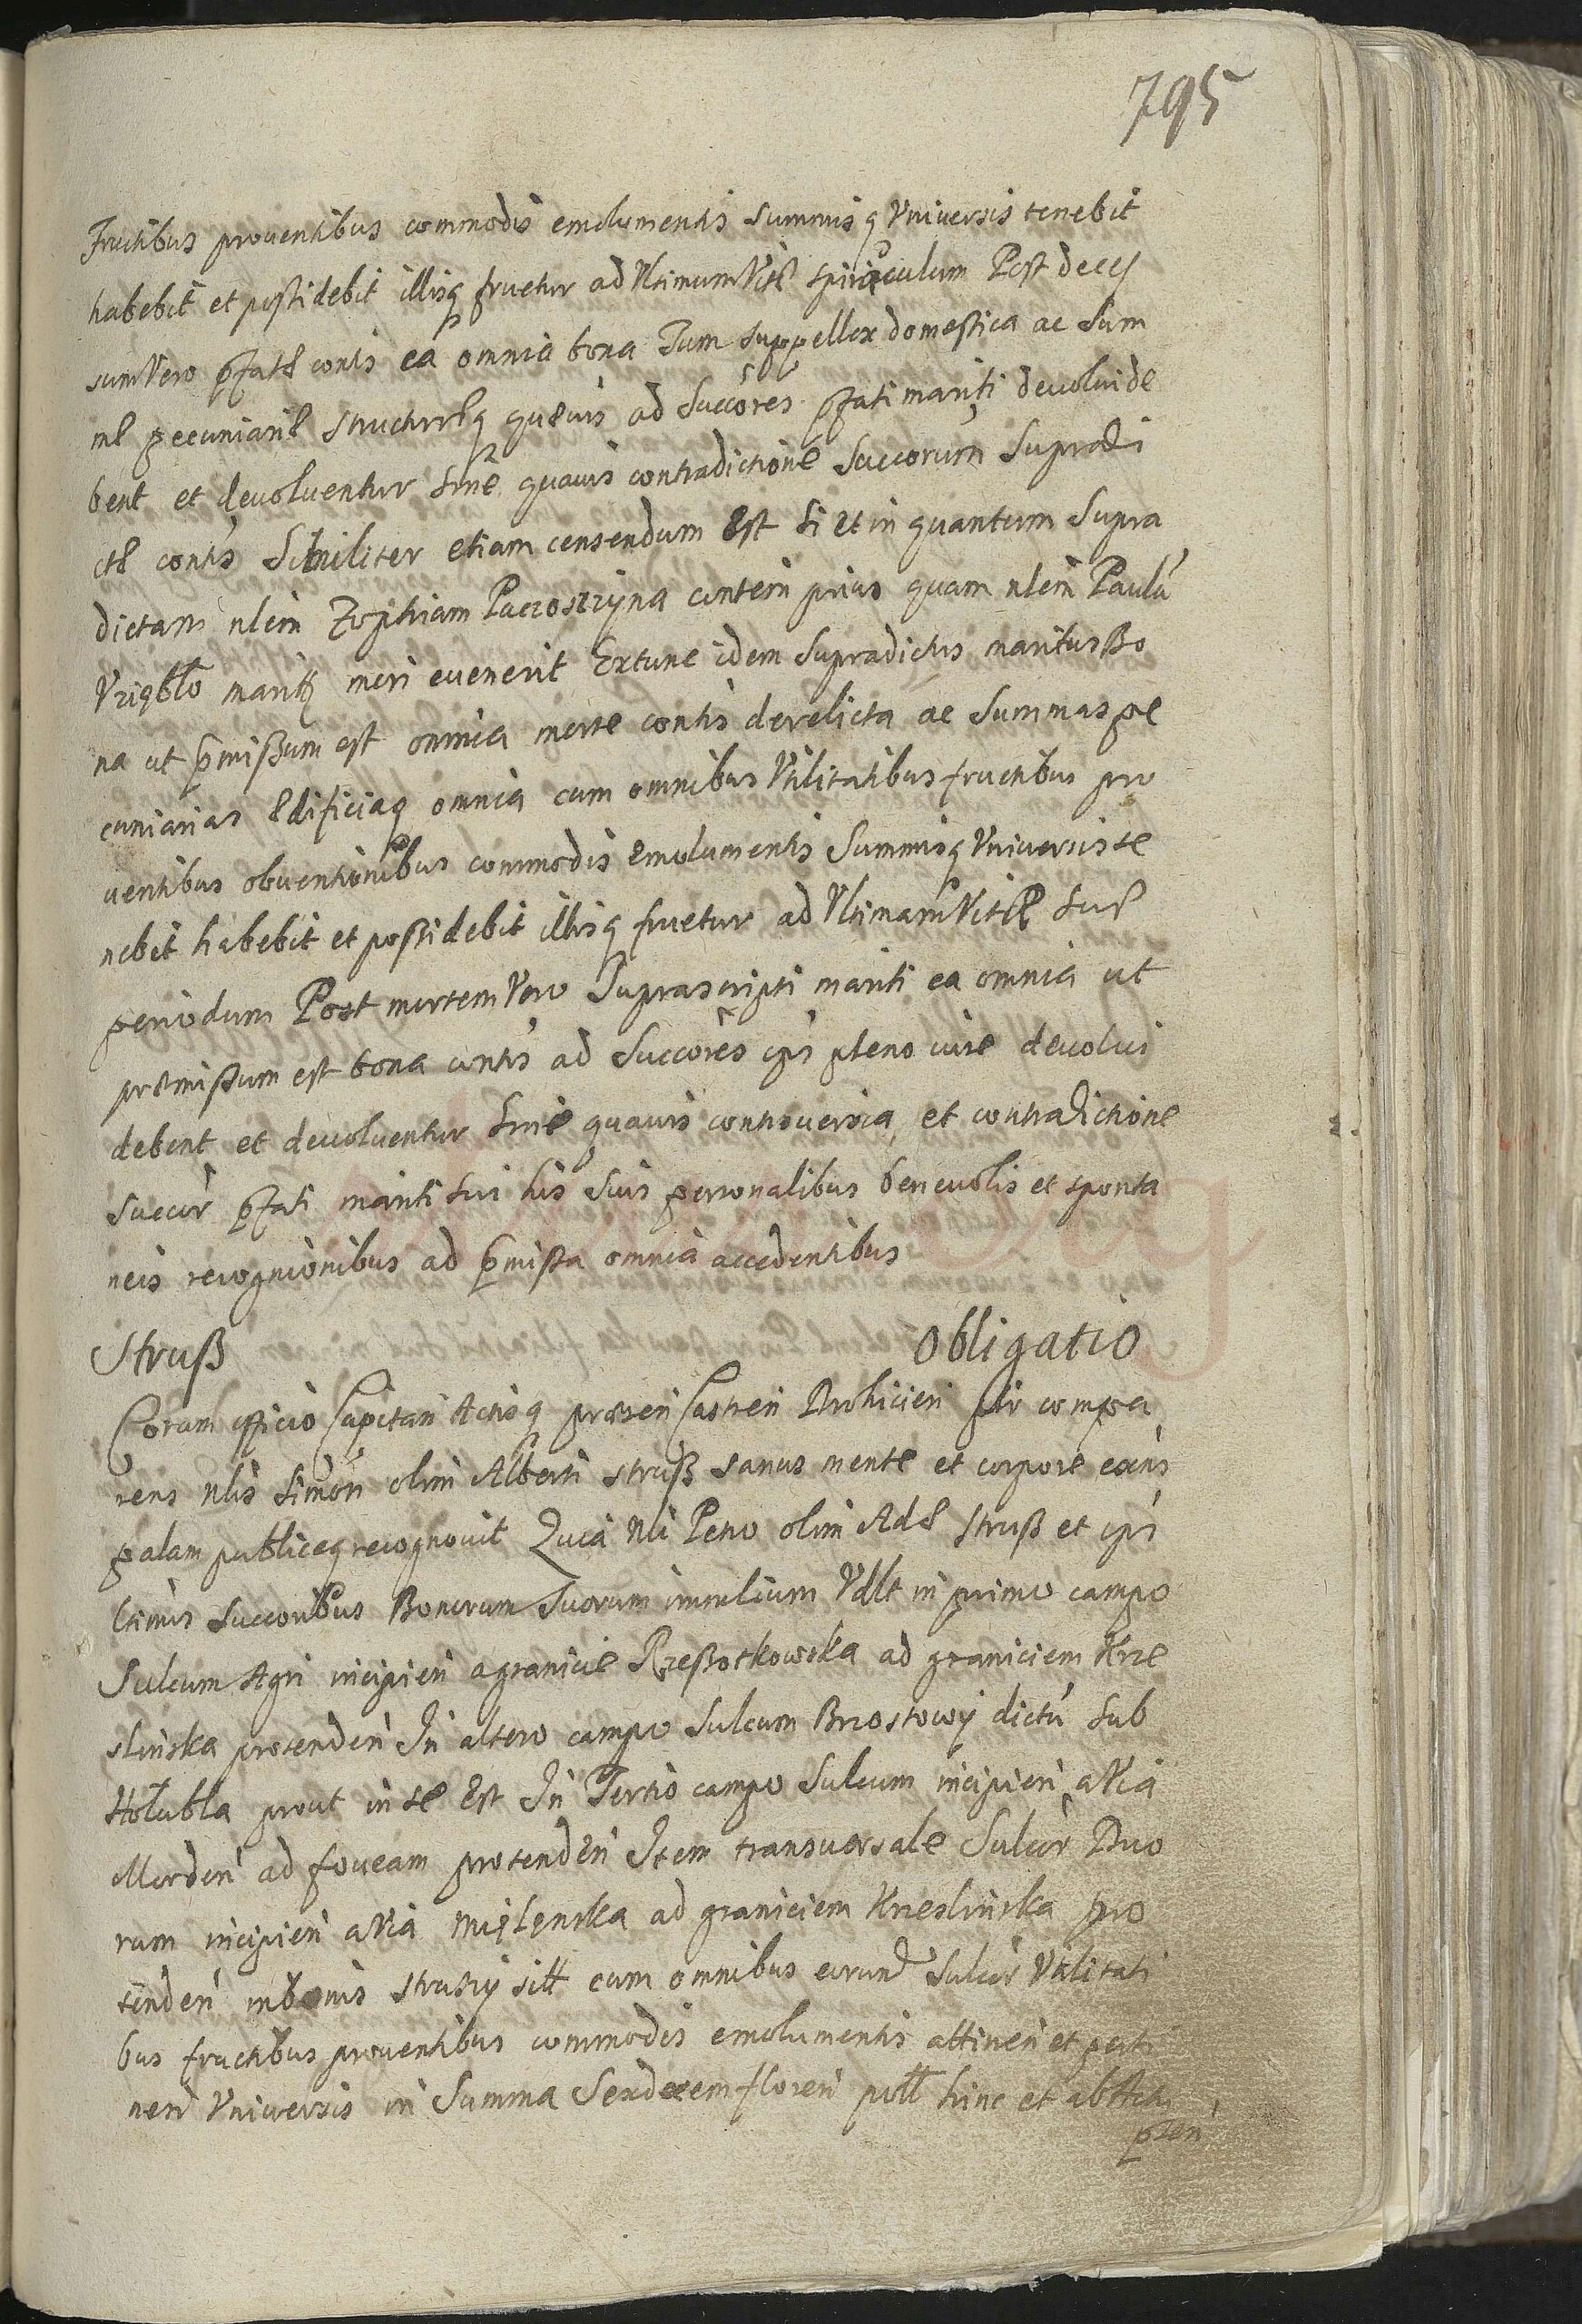 795
Fructibus proventibus commodis emolumentis summisq Vniversis tenebit
habebit et possidebit illisq fruetur ad Vltimum Vitę spiraculum Post deces
sum Vero pfatę contis ea omnia bona Tum suppellex domestica ac Sum
mę pecuniarię structuręq quęvis ad Succores pfati mariti devolvi de
bent et devolventur sine quavis contradictione Succorum Supradi
ctę contis Similiter etiam censendum Est si et in quantum Supra
dictam nlem Zophiam Paczoszczyna contem prius quam nlem Paulū
mariti mori evenerit Extunc idem Supradictus maritus Bo
na ut pmißum est omnia morte contis derelicta ac Summas pe
cuniarias Ędificiaq omnia cum omnibus Vtilitatibus fructibus pro
ventibus obventionibus commodis emolumentis Summisq Vniversis te
nebit habebit et possidebit illisq fruetur ad Vltimam Vitę suę
periodum Post mortem Vero Suprascripti mariti ea omnia ut
præmißum est bona contis ad Succores ips pleno iure devolvi
debent et devolventur Sine quavis controversia et contradictione
Succor pfati mariti sui his suis personalibus benevolis et sponta
neis recognionibus ad pmissa omnia accedentibus
Struß Obligatio
Coram officio Capitan Actisq præsen Castren Drohicien plr compa
rens nlis Simon olim Alberti Struß sanus mente et corpore exns
palam publiceq recognovit Quia nli Petro olim Adę Struß et ips
ltimis Succoribus Bonorum Suorum immlium Vdlt in primo campo
Sulcum Agri incipien a granicie Rzeßotkowska ad graniciem Krze
slinska protenden In altero campo Sulcum Brzostowy dictū sub
Holubla prout in se Est In Tertio campo Sulcum incipien a Via
Morden ad foveam protenden Item transversale Sulcor Duo
rum incipien a Via ad graniciem Krzeslinska pro
tenden in bonis Strussy sitt cum omnibus eorund Sulcor Vtilitati
bus fructibus proventibus commodis emolumentis attinen et perti
nend Vniversis in Summa Sexdecem floren poll hinc et ab Actu
pzen